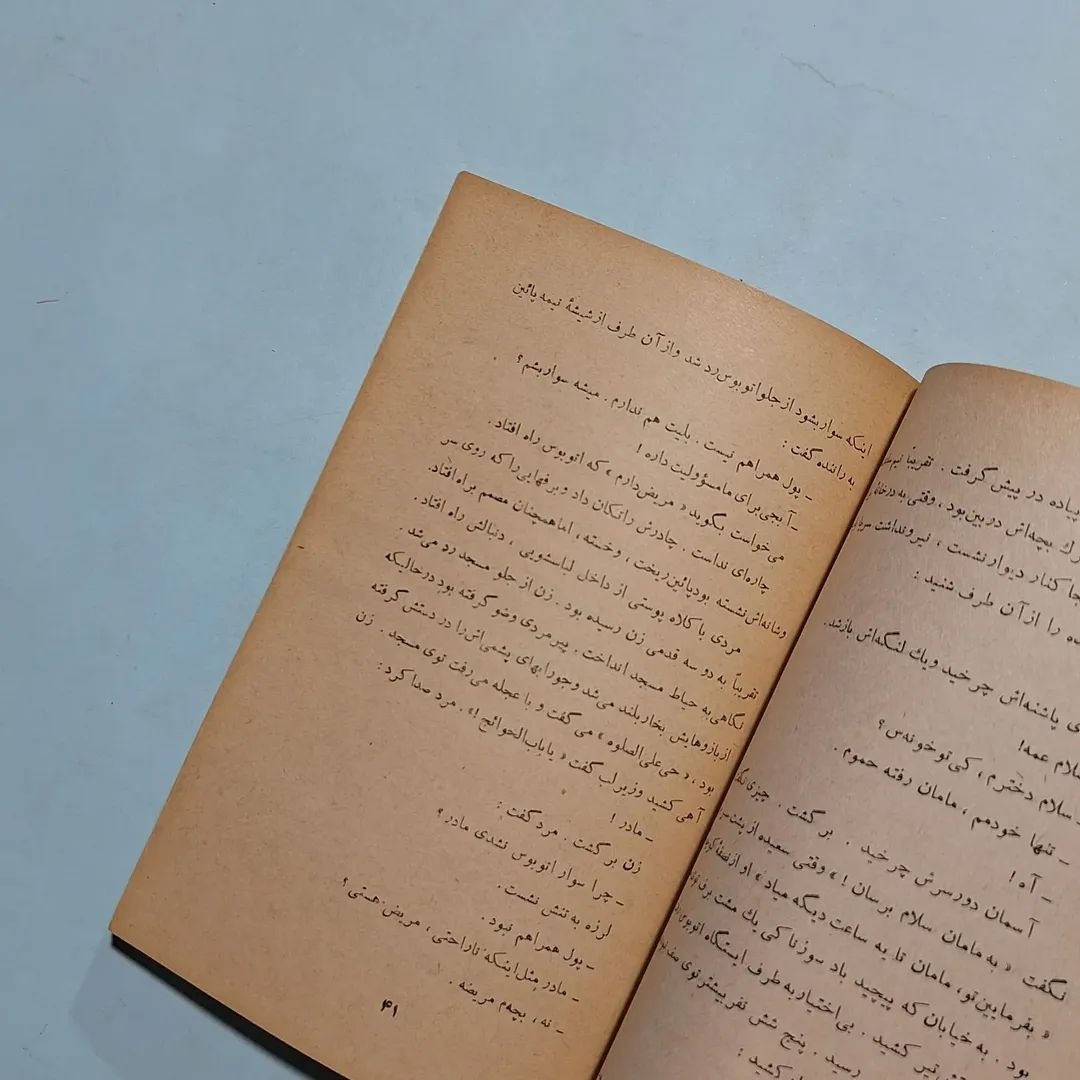 پیاده در پیش گرفت . تقریباً نیم
بچه‌اش در بین بود ، وقتی به در
کنار دیوار نشست ، نیرو نداشت سر
را از آن طرف شنید :
پاشنه‌اش چرخید و یك لنگه‌اش باز شد .
سلام عمه !
- سلام دخترم ، کی تو خونه‌س ؟
- تنها خودمم ، مامان رفته حموم .
- آه !
آسمان دور سرش چرخید . برگشت . چیزی
نگفت « به مامان سلام برسان ! » وقتی سعیده از پشت سر
« بفرمایین تو ، مامان تا یه ساعت دیگه میاد » او از
بود . به خیابان که پیچید باد سوزناکی یك مشت برف
تیر کشید . بی‌اختیار به طرف ایستگاه اتوبوس
رسید . پنج شش نفر بیشتر توی صف
کشید :
اینکه سوار بشود از جلو اتوبوس رد شد و از آن طرف از شیشۀ نیمه پائین
به راننده گفت :
- پول همراهم نیست . بلیت هم ندارم . میشه سوار بشم ؟
- آبجی برای ما مسؤولیت داره !
می‌خواست بگوید « مریض دارم » که اتوبوس راه افتاد .
چاره‌ای نداست . چادرش را تکان داد و برفهایی را که روی سر
و شانه‌اش نشسته بود پائین ریخت ، و خسته ، اما همچنان مصمم براه افتاد.
مردی با کلاه پوستی از داخل لباسشویی ، دنبالش راه افتاد .
تقریباً به دو سه قدمی زن رسیده بود . زن از جلو مسجد رد می‌شد
نگاهی به حیاط مسجد انداخت . پیرمردی وضو گرفته بود در حالیکه
از بازوهایش بخار بلند می‌شد و جورابهای پشمی‌اش را در دستش گرفته
بود ، « حی علی الصلوه » می گفت و با عجله می‌رفت توی مسجد . زن
آهی کشید و زیر لب گفت « یا باب الحوائج !» . مرد صدا کرد :
- مادر !
زن برگشت . مرد گفت :
- چرا سوار اتوبوس نشدی مادر ؟
لرزه به تنش نشست .
- پول همراهم نبود .
- مادر مثل اینکه ناراحتی ، مریض هستی ؟
- نه ، بچه‌م مریضه .
۴۱